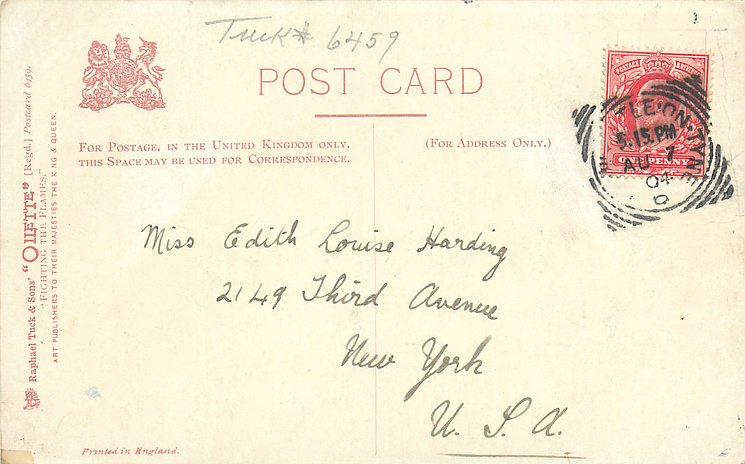 Tuck # 6459
POST CARD
FOR POSTAGE, IN THE UNITED KINGDOM ONLY,
THIS SPACE MAY BE USED FOR CORRESPONDENCE.
(FOR ADDRESS ONLY.)
POSTAGE
ONE PENNY
LE-ON-TYNE
5.15 PM
AU 1
04
Miss Edith Louise Harding
2149 Third Avenue
New York
U. S. A.
Raphael Tuck & Sons' "OILETTE" [Regd.] Postcard 6459.
"FIGHTING THE FLAMES."
ART PUBLISHERS TO THEIR MAJESTIES THE KING & QUEEN.
Printed in England.